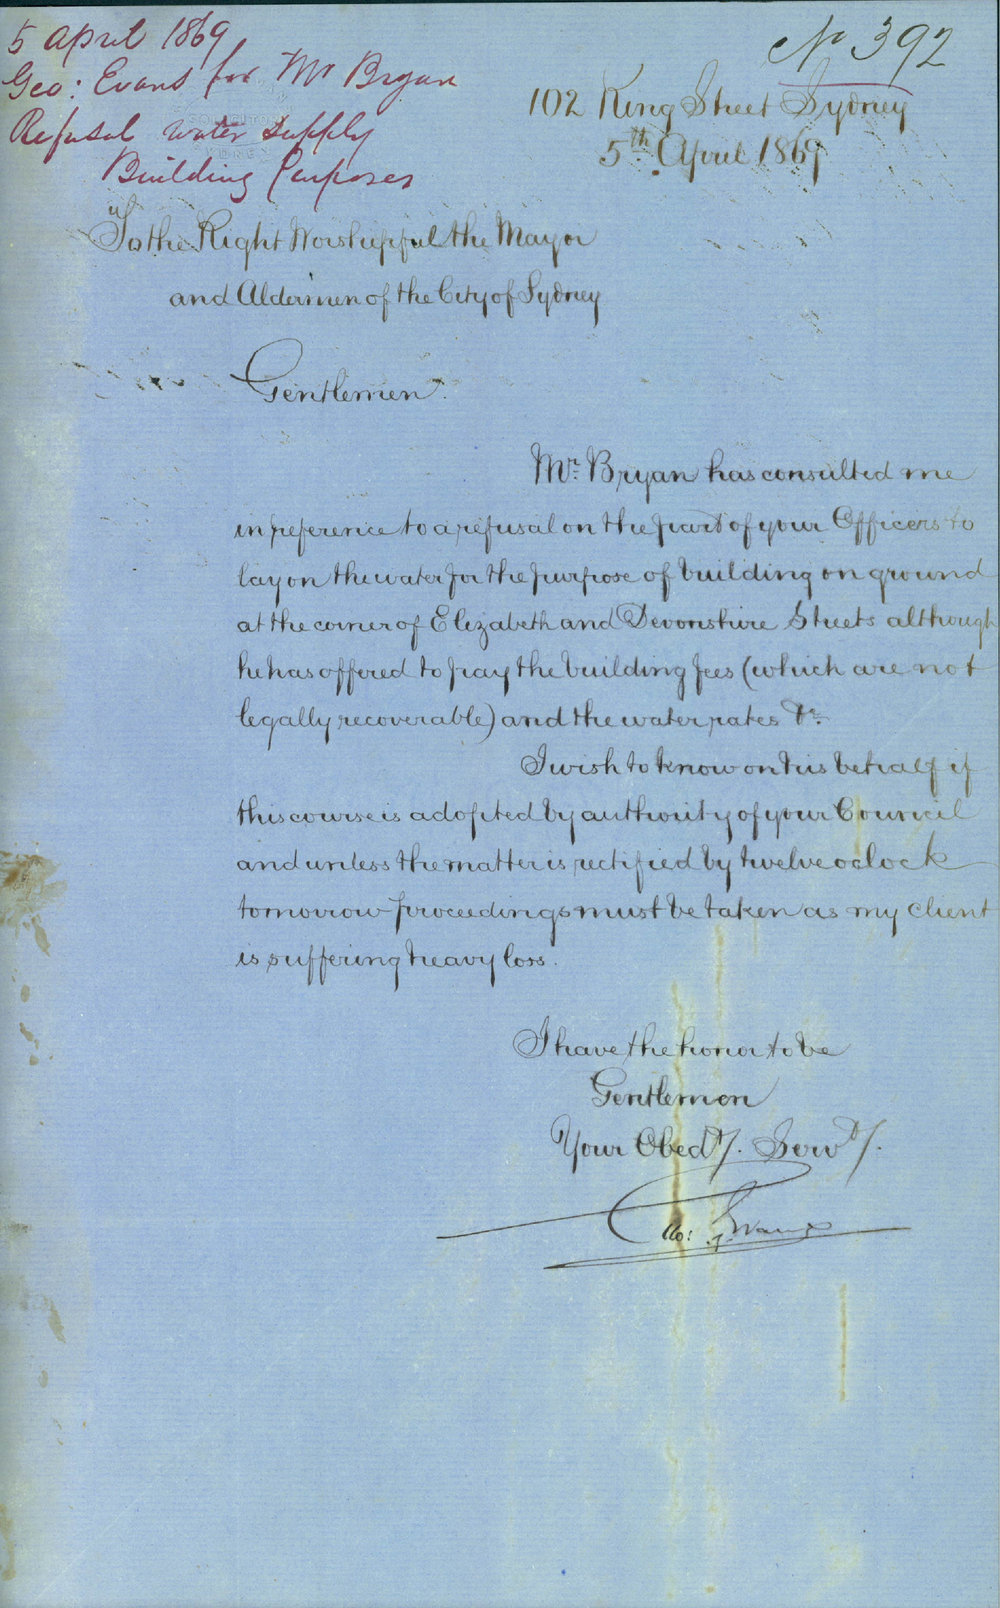 5 April 1869
Geo: Evans for Mr Bryan
Refusal water supply
Building Purposes
No 392
SOLICITOR
SYDNEY
102 King Street Sydney
5th. April 1869
To the Right Worshipful the Mayor
and Aldermen of the City of Sydney
Gentlemen.
Mr. Bryan has consulted me
in reference to a refusal on the part of your Officers to
lay on the water for the purpose of building on ground
at the corner of Elizabeth and Devonshire Streets although
he has offered to pay the building fees (which are not
legally recoverable) and the water rates &c.
I wish to know on his behalf if
this course is adopted by authority of your Council
and unless the matter is rectified by twelve oclock
tomorrow proceedings must be taken as my client
is suffering heavy loss.
I have the honor to be
Gentlemen
Your Obedt/. Servt/.
Geo: Evans